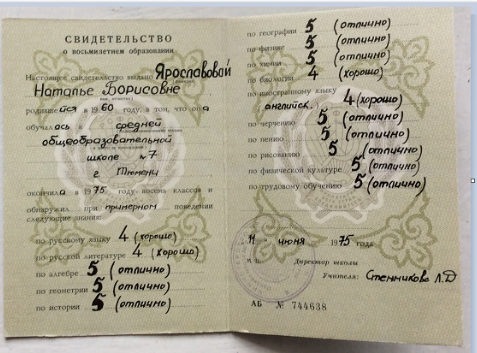 СВИДЕТЕЛЬСТВО
о восьмилетнем образовании
Настоящее свидетельство выдано Ярославовой
Наталье Борисовне
родившейся в 1960 году, в том, что она
обучалась в средней
общеобразовательной
школе № 7
г Тюмени
окончила в 1975 году восемь классов и
обнаружил при примерном поведении
следующие знания:
по русскому языку 4 (хорошо)
по русской литературе 4 (хорошо)
по алгебре 5 (отлично)
по геометрии 5 (отлично)
по истории 5 (отлично)
по географии 5 (отлично)
по физике 5 (отлично)
по химии 5 (отлично)
по биологии 4 (хорошо)
по иностранному языку
английск. 4 (хорошо)
по черчению 5 (отлично)
по пению 5 (отлично)
по рисованию 5 (отлично)
по физической культуре 5 (отлично)
по трудовому обучению 5 (отлично)
11 - июня 1975 года
М. П. Директор школы
Учителя: Стенникова Л.Д
АБ № 744638